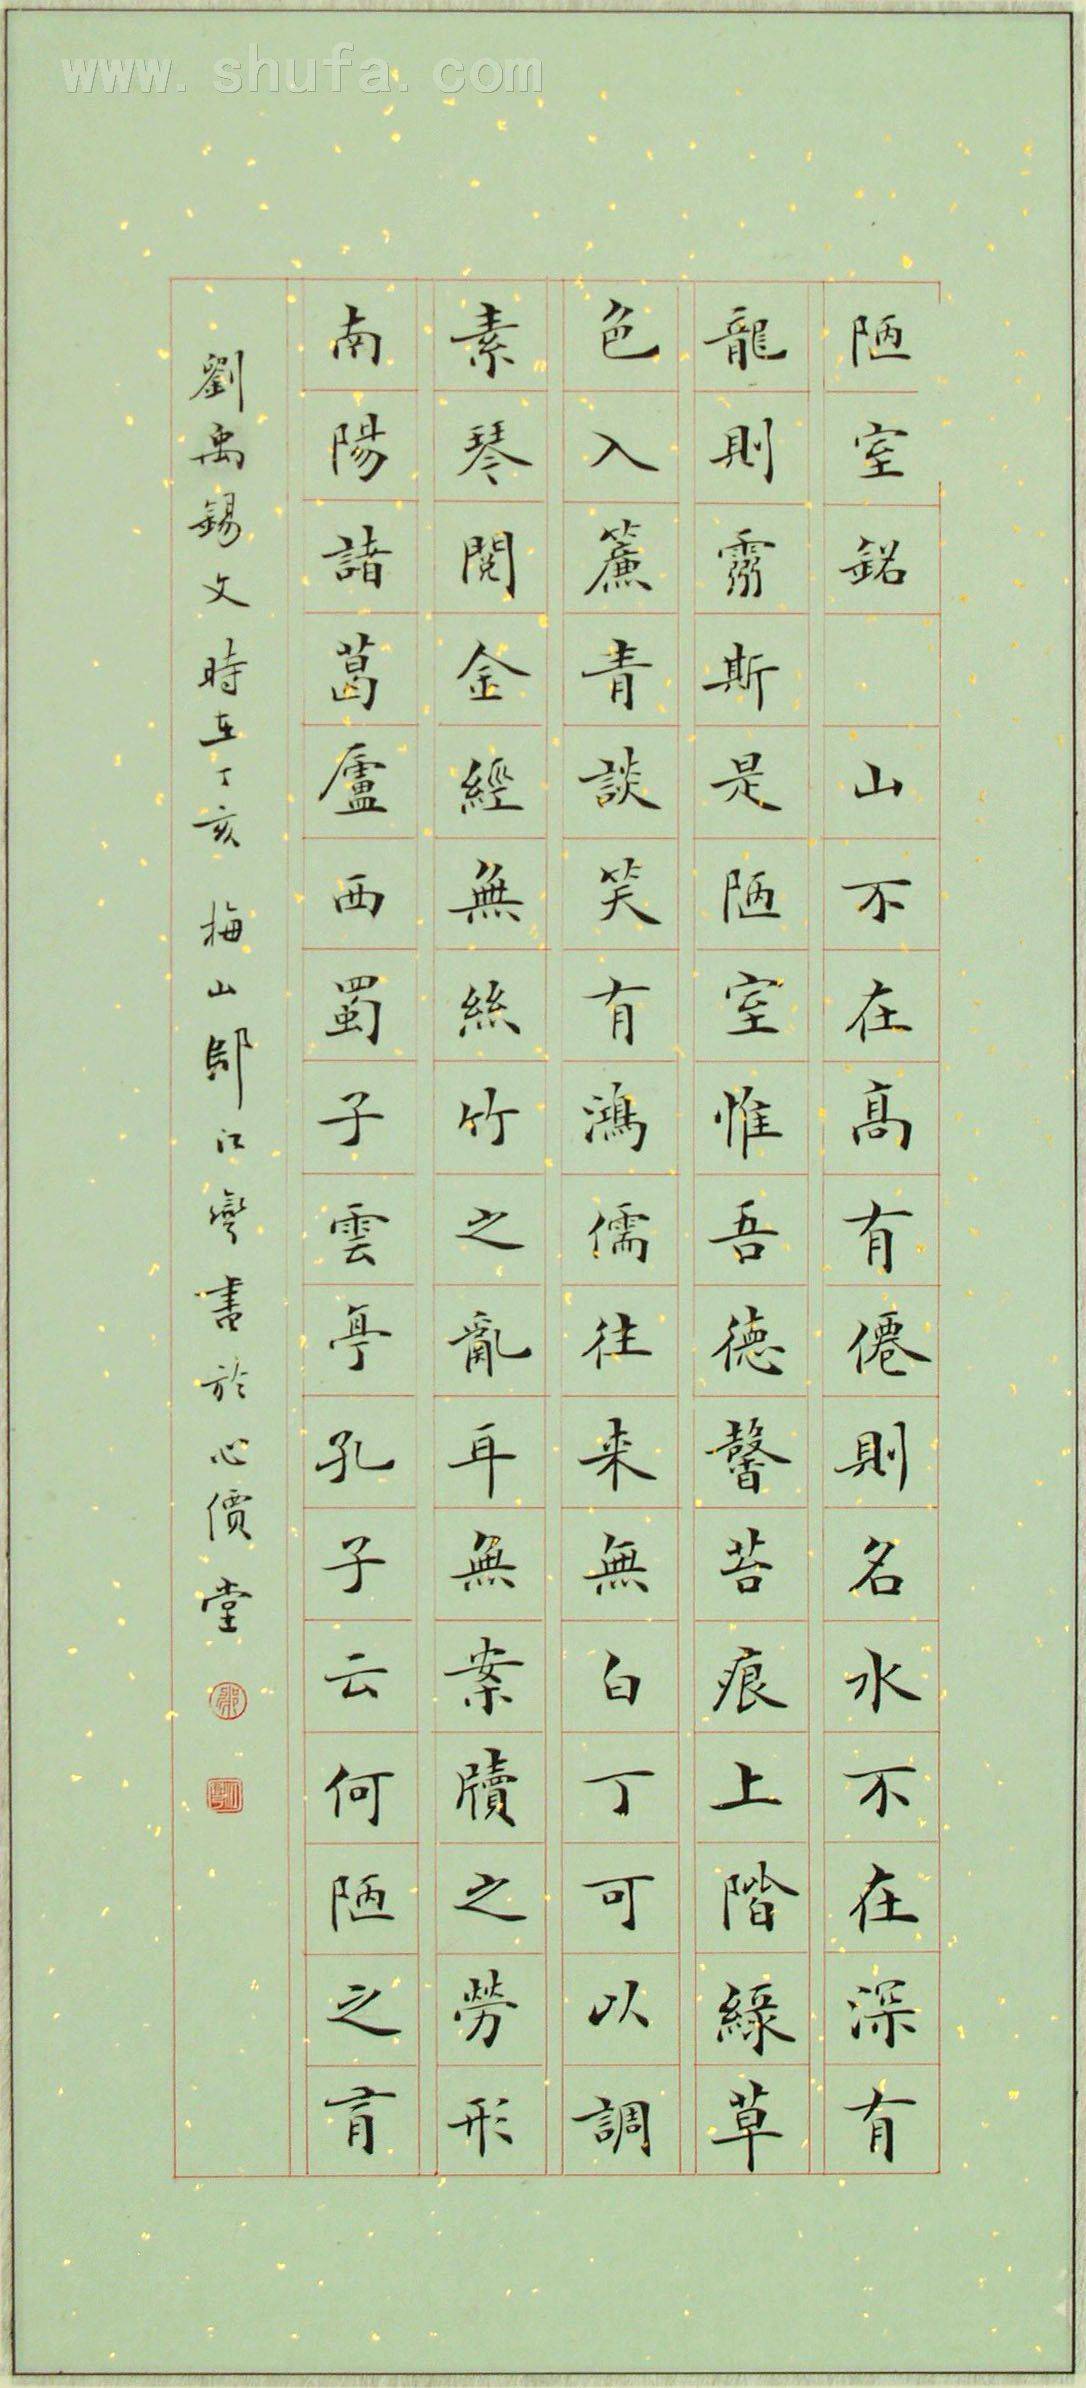 www.shufa.com
陋室銘 山不在高有僊則名水不在深有
龍則霛斯是陋室惟吾德馨苔痕上階綠草
色入簾青談笑有鴻儒往来無白丁可以調
素琴閱金經無絲竹之亂耳無案牘之勞形
南陽諸葛廬西蜀子雲亭孔子云何陋之有
劉禹錫文時在丁亥 梅山鄔江彎書於心價堂